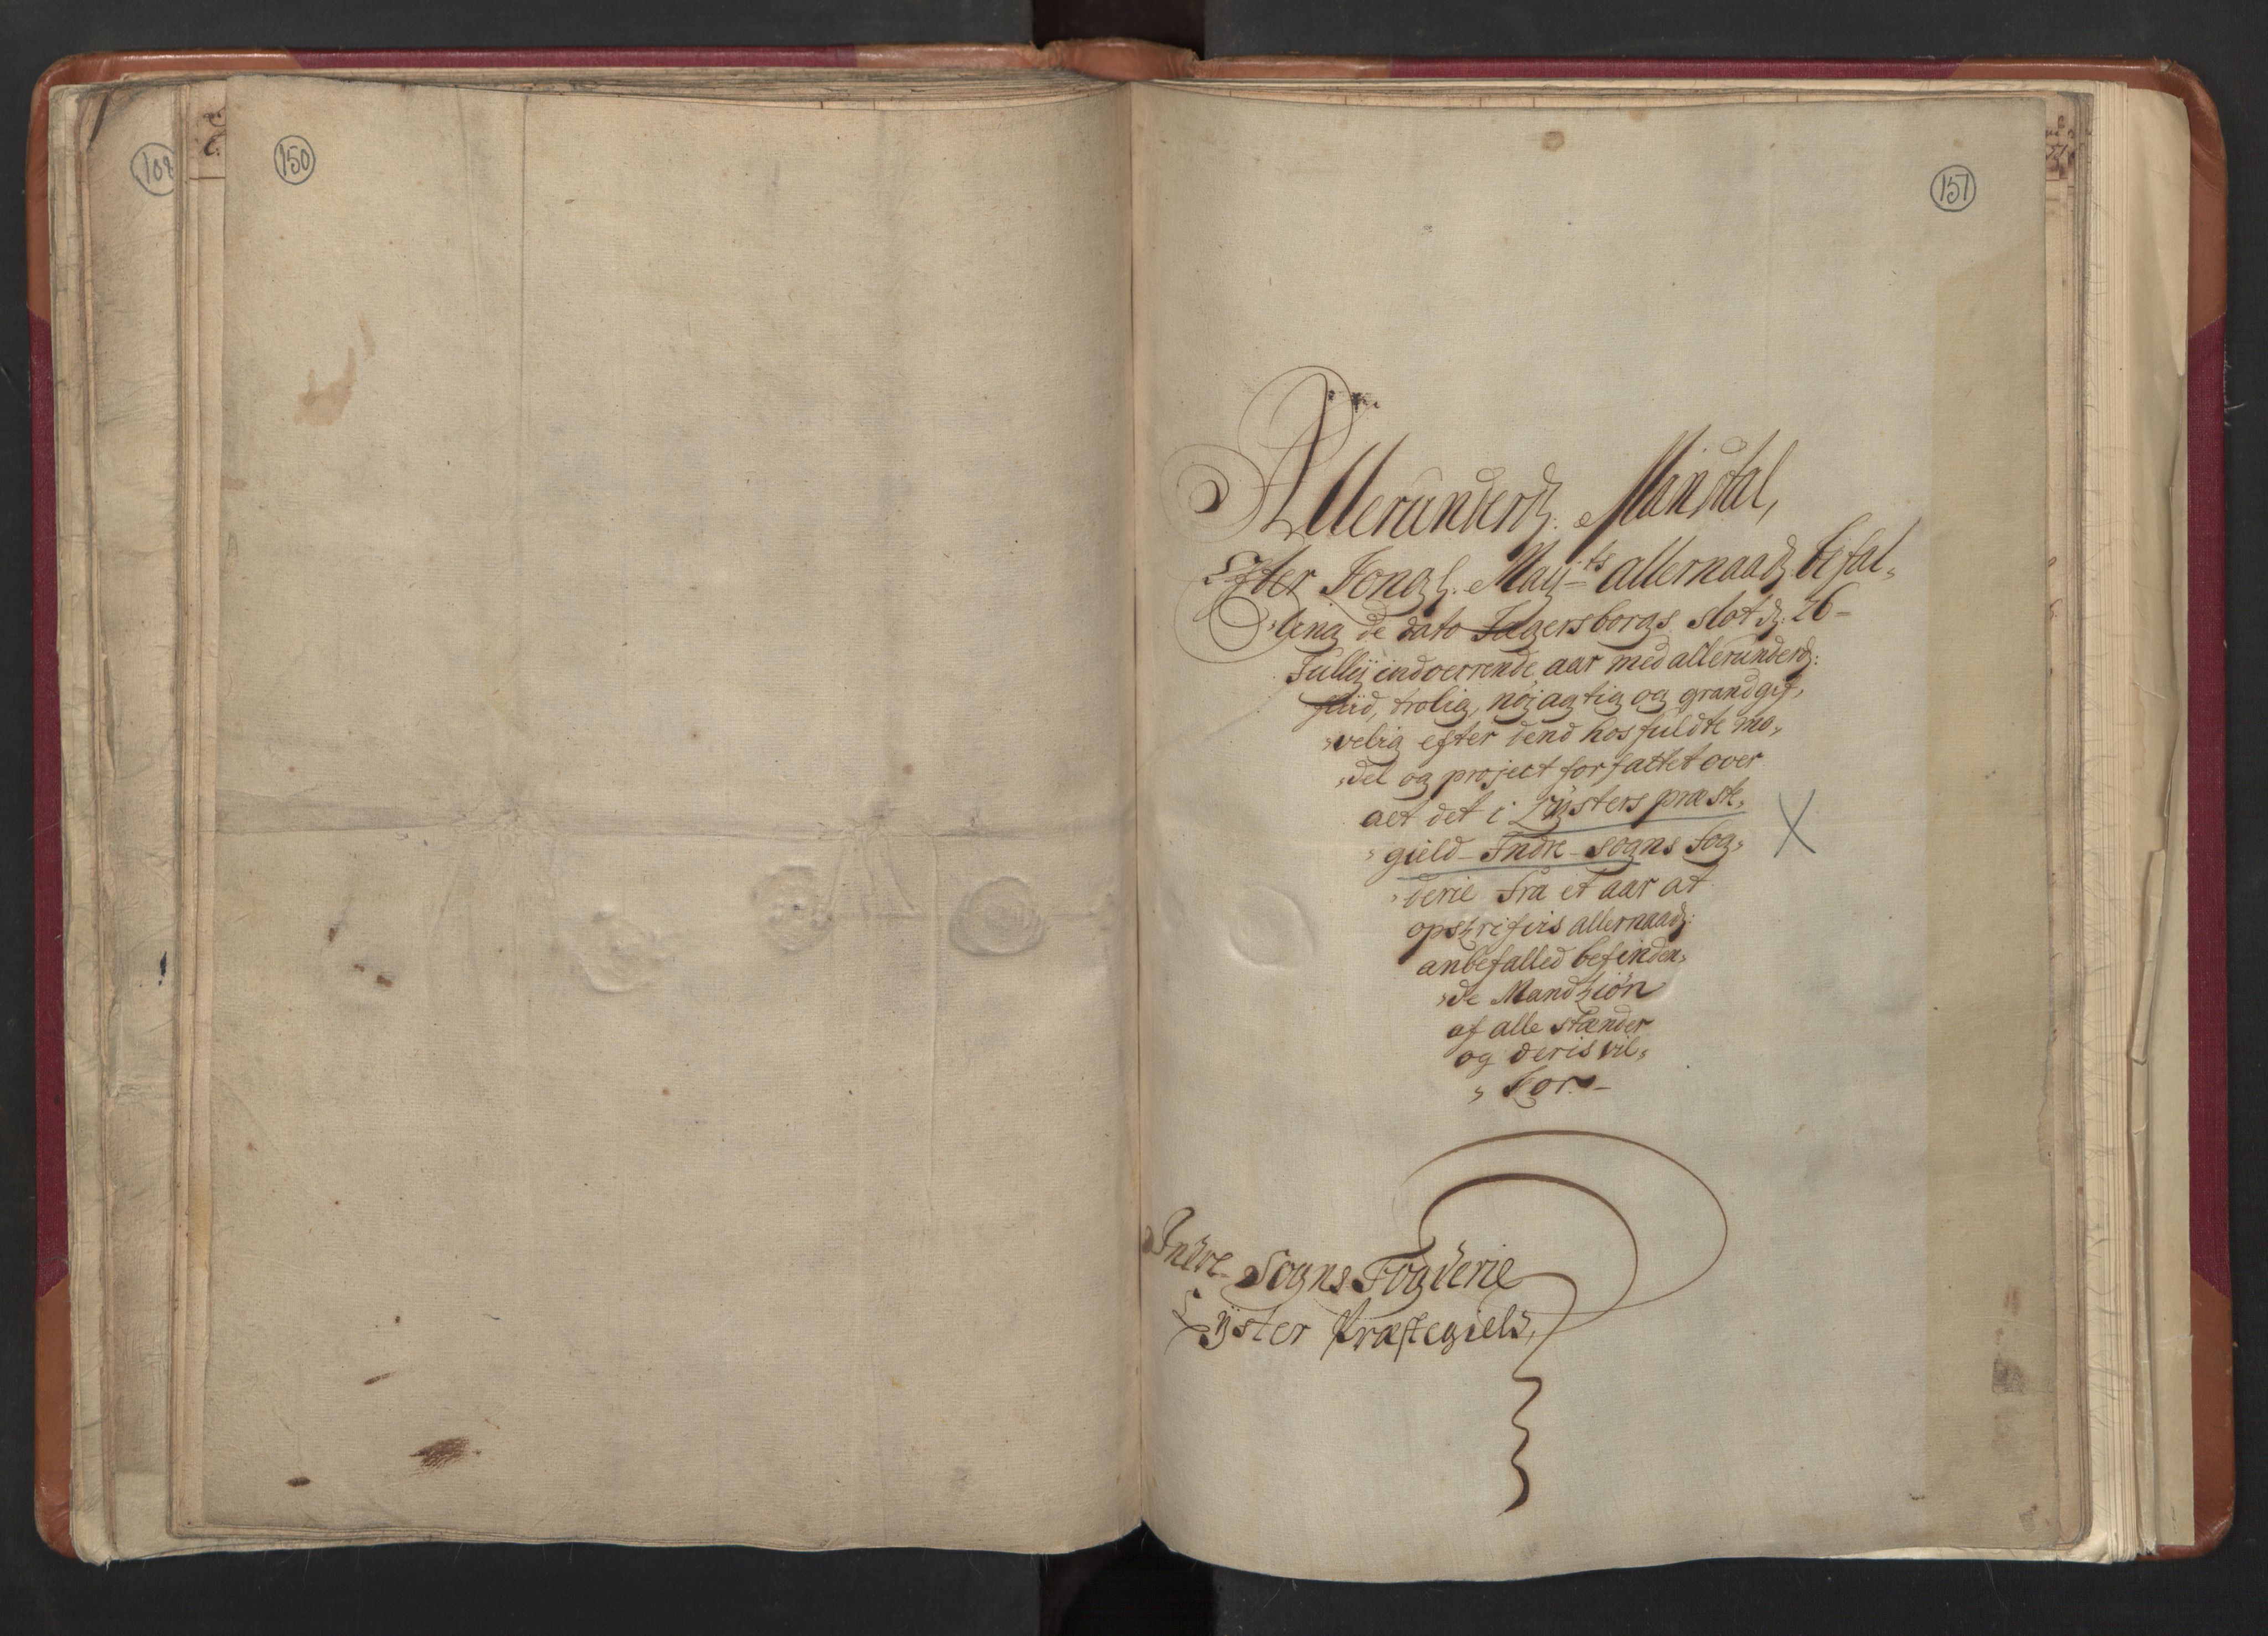 108
150
151
Allerunderd: Mandtal,
Efter Kongl. May:ts allernaad: befal,,
,,ling de dato Jægersborgs slot d: 26
Jullÿ indværende aar med allerunderd:
fliid, trolig, nøjagtig og grandgif,,
,,velig efter dend hosfuldte mo,,
,,del og project forfattet over
aet det i Lÿsters præste,,
,,gield Indre Sogns fog,,
,,derie fra et aar at
opskrifvis allernaad:
anbefalled befinden,,
,,de Mandkiøn
af alle stænder
og deris vil,,
,,kor
Indre Sogns Fogderie
Lÿster Præstegield,